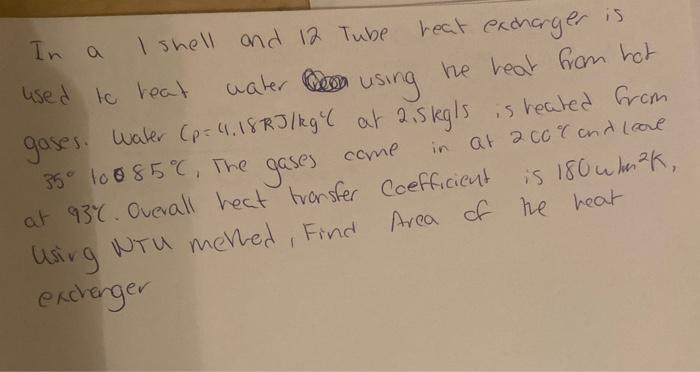 In a 1 shell and 12 Tube heat exchanger is
used to heat water using the heat from hot
gases. Water Cp=4.18RJ/kg°C at 2.5kg/s is heated from
35° to 85°C, The gases come in at 200°C and leave
at 93°C. Overall heat transfer Coefficient is 180w/m²K,
Using NTU method, Find Area of the heat
exchanger